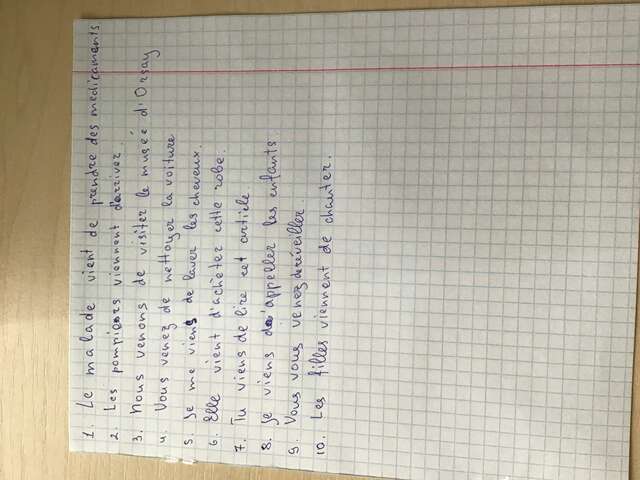 1. Le malade vient de prendre des medicaments
2. Les pompiers viennent d'arriver
3. Nous venons de visiter le musée d'Orsay
4. Vous venez de nettoyer la voiture
5. Je me viens de laver les cheveux.
6. Elle vient d'acheter cette robe.
7. Tu viens de lire cet article
8. Je viens d'appeller les enfants
9. Vous vous venez de réveiller
10. Les filles viennent de chanter.